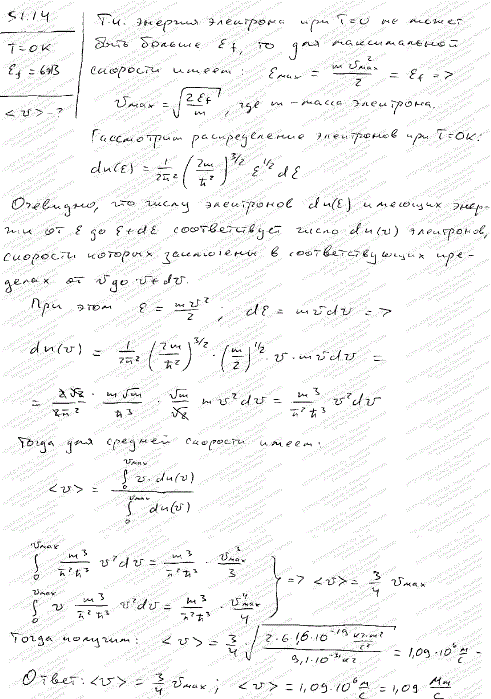 51.14
T=0K
Ef = 6эВ
<v> - ?
Т.к. энергия электрона при T=0 не может
быть больше Ef, то для максимальной
скорости имеем: Emax = mv²max/2 = Ef =>
vmax = √(2Ef/m), где m - масса электрона.
Рассмотрим распределение электронов при T=0K:
dn(ε) = 1/2π² (2m/ħ²)^3/2 ε^1/2 dε
Очевидно, что числу электронов dn(ε) имеющих энер-
гии от ε до ε+dε соответствует число dn(v) электронов,
скорости которых заключены в соответствующих пре-
делах от v до v+dv.
При этом ε = mv²/2; dε = mvdv =>
dn(v) = 1/2π² (2m/ħ²)^3/2 · (m/2)^1/2 · v · mvdv =
= 2√2/2π² · m√m/ħ³ · √m/√2 mv²dv = m³/π²ħ³ v²dv
Тогда для средней скорости имеем:
<v> = ∫0^vmax v·dn(v) / ∫0^vmax dn(v)
∫0^vmax m³/π²ħ³ v²dv = m³/π²ħ³ · v³max/3
∫0^vmax v m³/π²ħ³ v²dv = m³/π²ħ³ · v⁴max/4 } => <v> = 3/4 vmax
Тогда получим: <v> = 3/4 · √(2·6·1,6·10⁻¹⁹ кг·м²/с² / 9,1·10⁻³¹ кг) = 1,09·10⁶ м/с -
Ответ: <v> = 3/4 vmax; <v> = 1,09·10⁶ м/с = 1,09 Мм/с